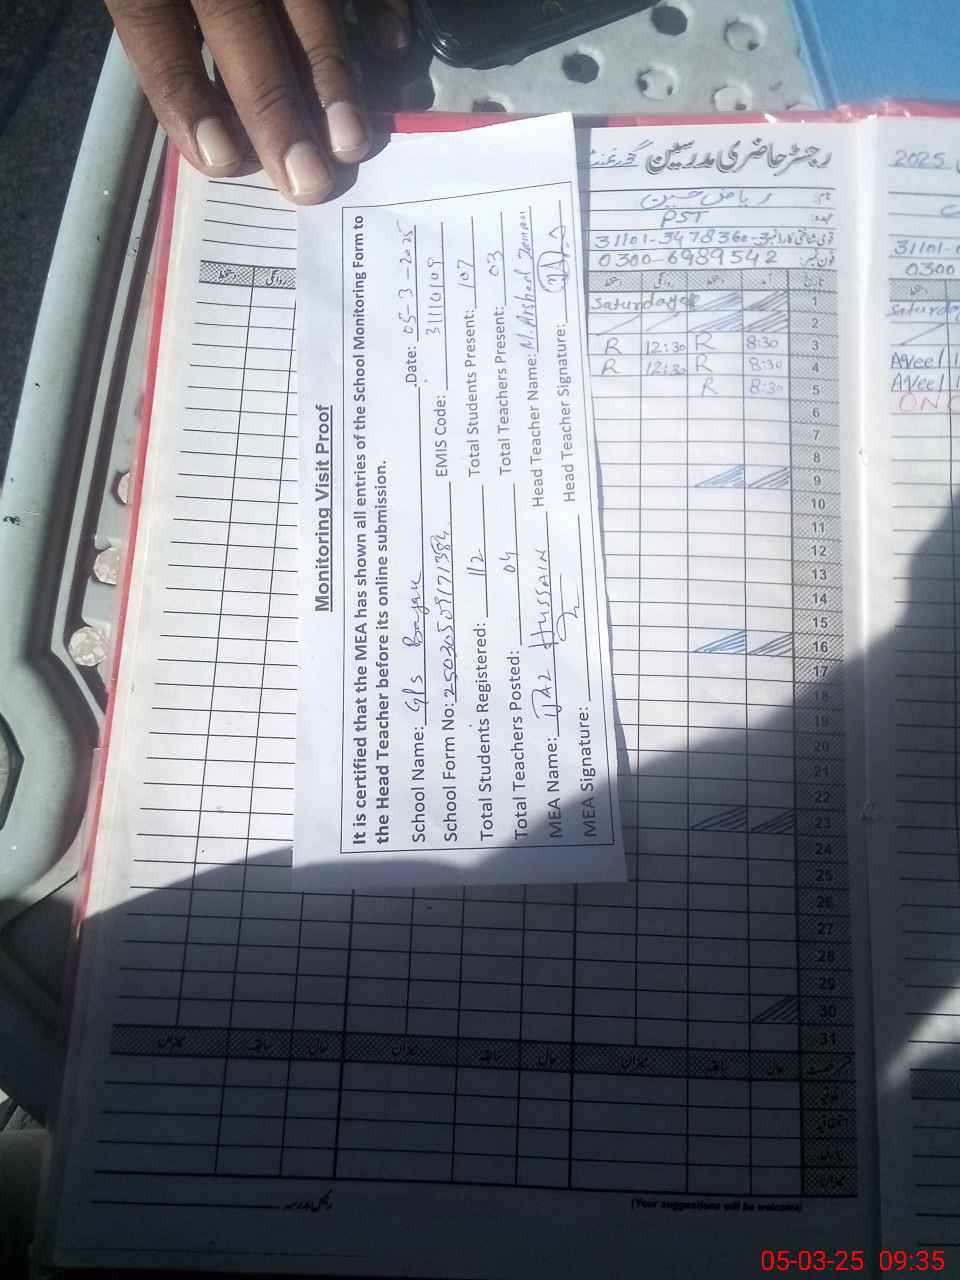 Monitoring Visit Proof
It is certified that the MEA has shown all entries of the School Monitoring Form to
the Head Teacher before its online submission.
School Name: GPS Date: 05-3-2025
School Form No: EMIS Code: 31110109
Total Students Registered: 112 Total Students Present: 107
Total Teachers Posted: 04 Total Teachers Present: 03
MEA Name: IJAZ HUSSAIN Head Teacher Name: M. Arshed
MEA Signature: Head Teacher Signature:
رجسٹر حاضری مدرسین گورنمنٹ
نام: ریاض حسین
عہدہ: PST
قومی شناختی کارڈ نمبر 31101-3478360-3
فون نمبر: 0300-6989542
دستخط روانگی دستخط آمد تاریخ
Saturday 1
2
R 12:30 R 8:30 3
R 12:30 R 8:30 4
R 8:30 5
6
7
8
9
10
11
12
13
14
15
16
17
18
19
20
21
22
23
24
25
26
27
28
29
30
31
میزان سابقہ حال میزان سابقہ حال میزان سابقہ حال
(Your suggestions will be welcome)
2025
31101-
0300
Aqeel
Aqeel
05-03-25 09:35